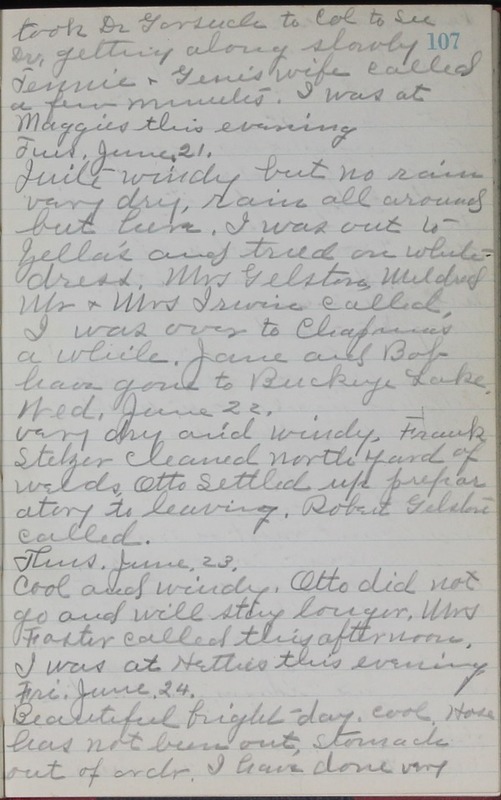 took Dr Gorsuch to Col to See
Dr, getting along slowly 107
Jennie + Genis wife called
a few minutes. I was at
Maggies this evening
Tues. June, 21.
Quite windy but no rain
very dry, rain all around
but here. I was out to
Zella's and tried on white
dress. Mrs Gelston, Mildred
Mr + Mrs Irwin called,
I was over to Chapmans
a while. Jane and Bob
have gone to Buckeye Lake.
Wed, June 22.
very dry and windy, Frank
Stelzer cleaned north yard of
welds, Otto Settled up prepar
atory to leaving. Robert Gelston
called.
Thus. June, 23.
Cool and windy. Otto did not
go and will stay longer. Mrs
Foster called this afternoon.
I was at Netties this evening
Fri. June, 24.
Beautiful bright day. cool, Hose
has not been out, Stomach
out of ordr. I have done very